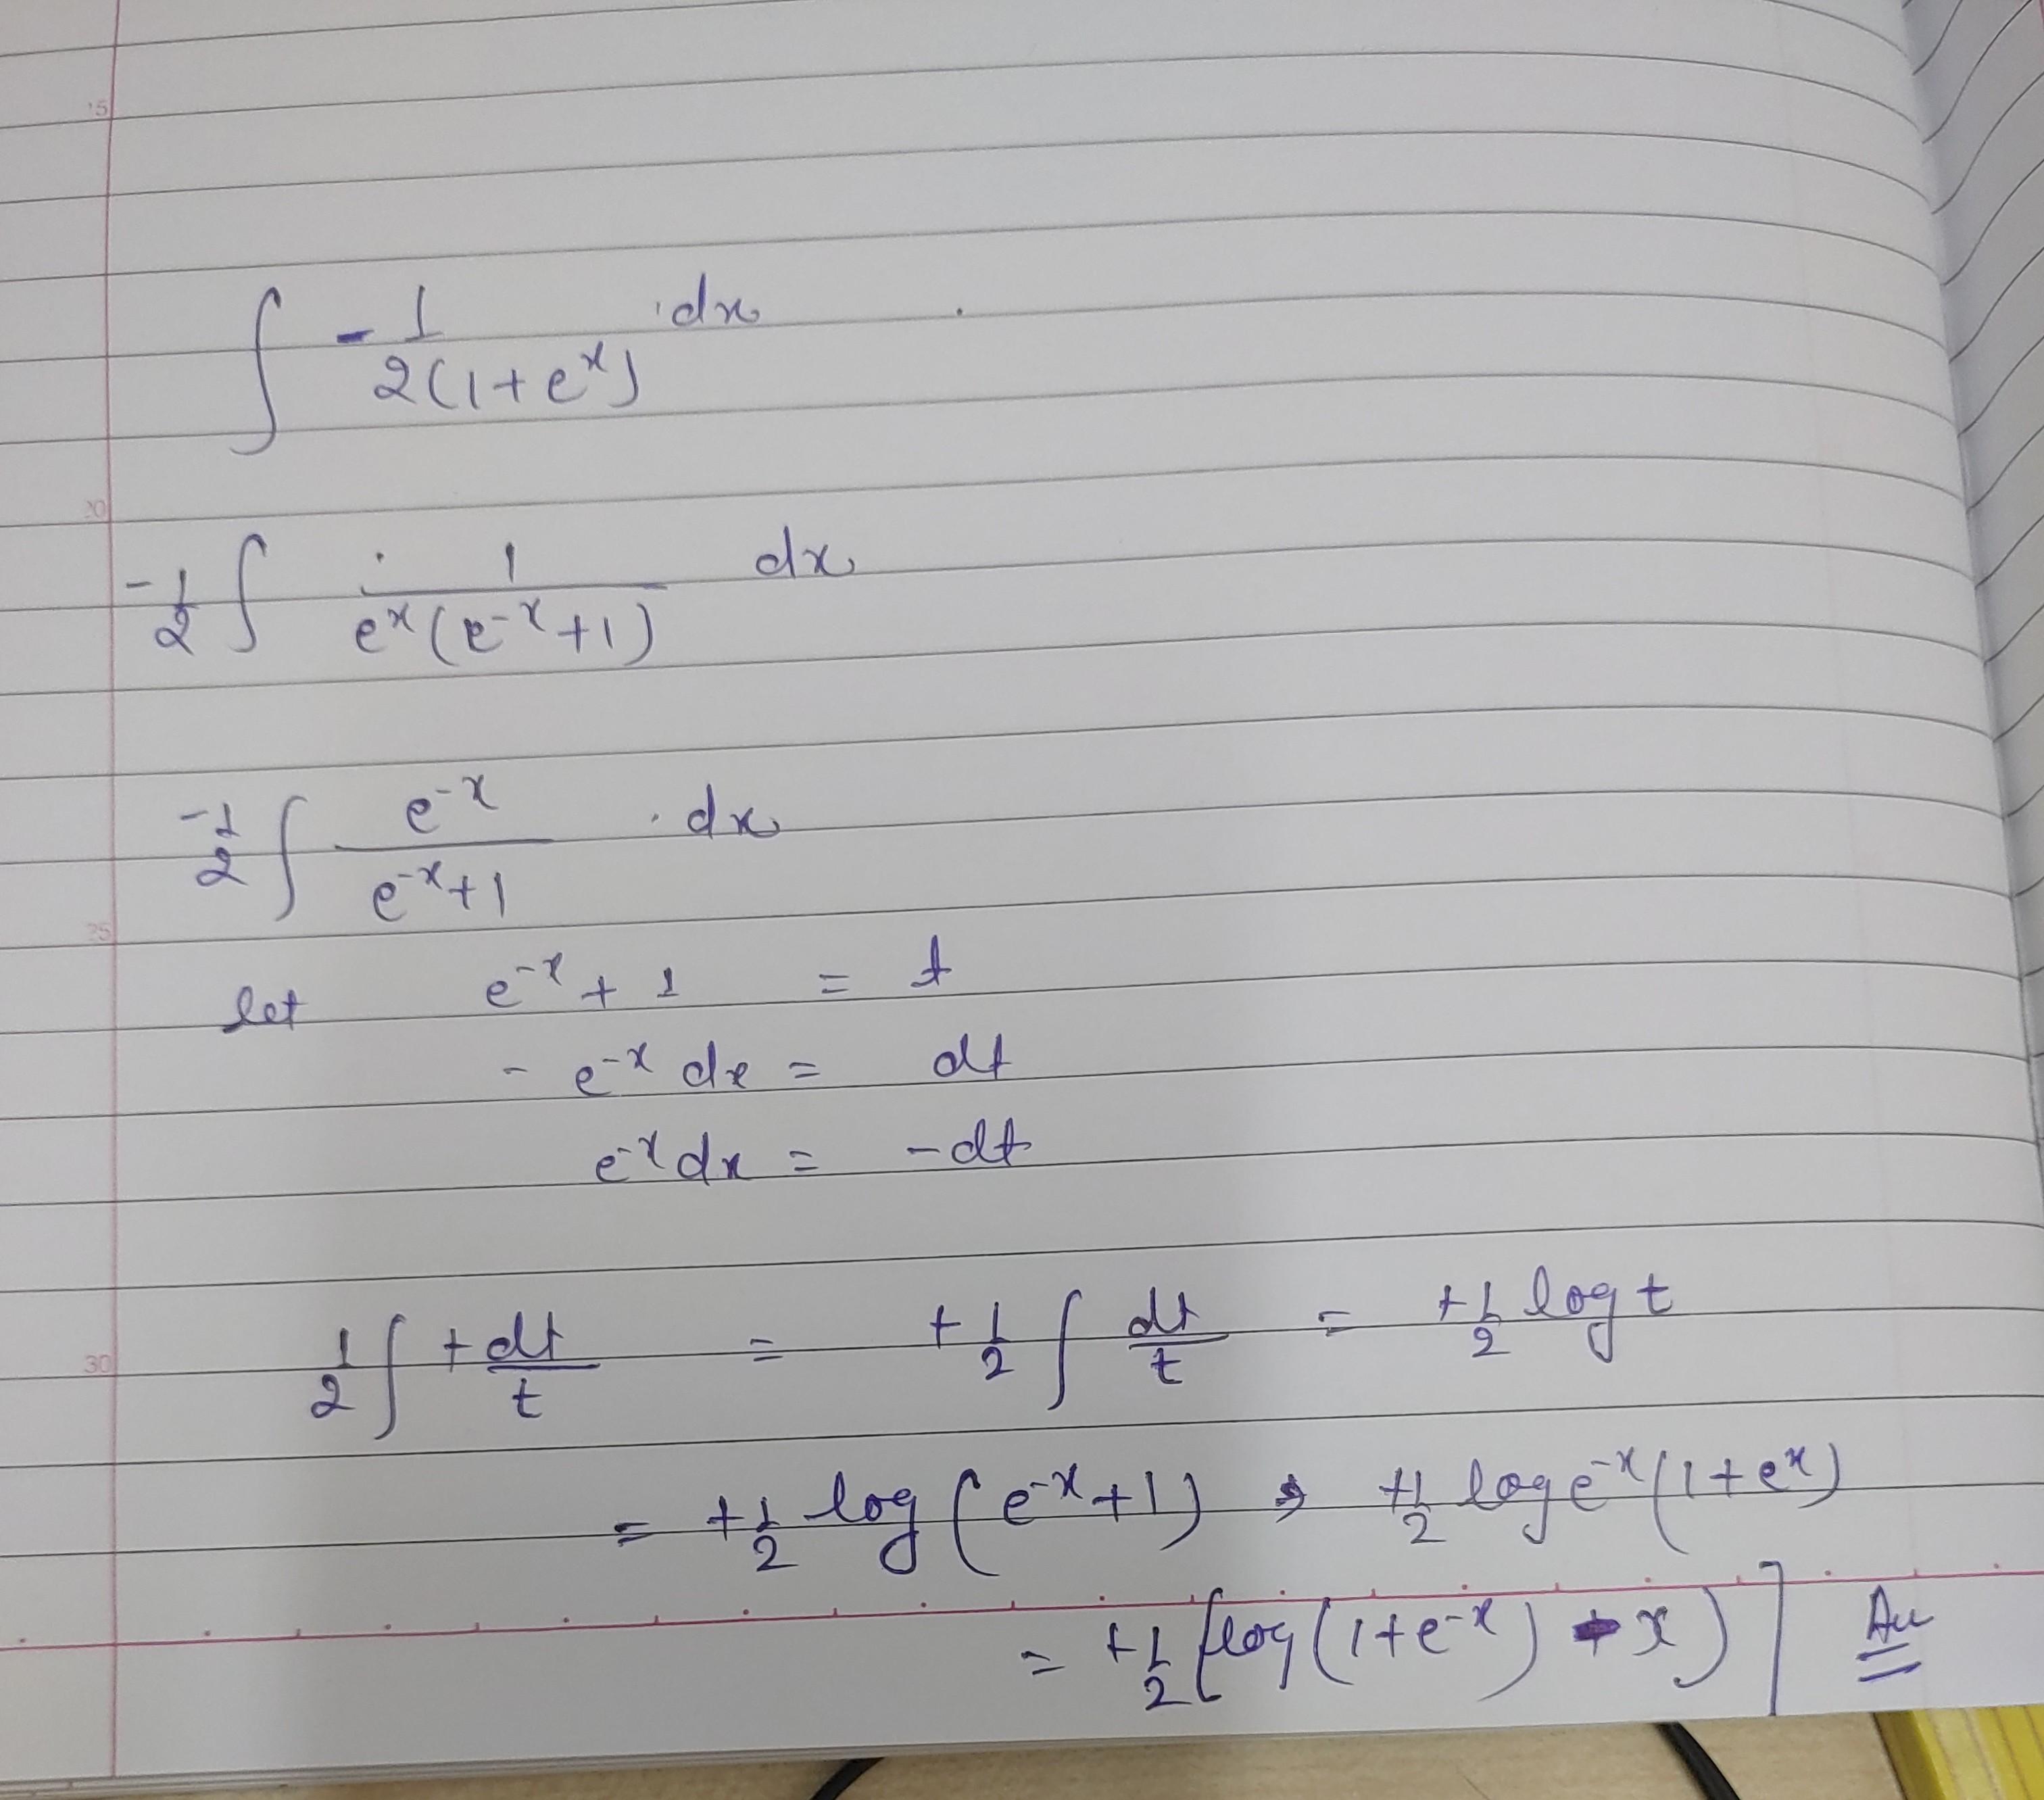 15
∫ -1/2(1+eˣ) · dx
20
-1/2 ∫ 1/eˣ(e⁻ˣ+1) dx
-1/2 ∫ e⁻ˣ/e⁻ˣ+1 · dx
25
let e⁻ˣ + 1 = t
- e⁻ˣ dx = dt
e⁻ˣ dx = -dt
30
1/2 ∫ +dt/t = +1/2 ∫ dt/t = +1/2 log t
= +1/2 log (e⁻ˣ+1) ⇒ +1/2 log e⁻ˣ(1+eˣ)
= +1/2 [log(1+e⁻ˣ) - x)] Au